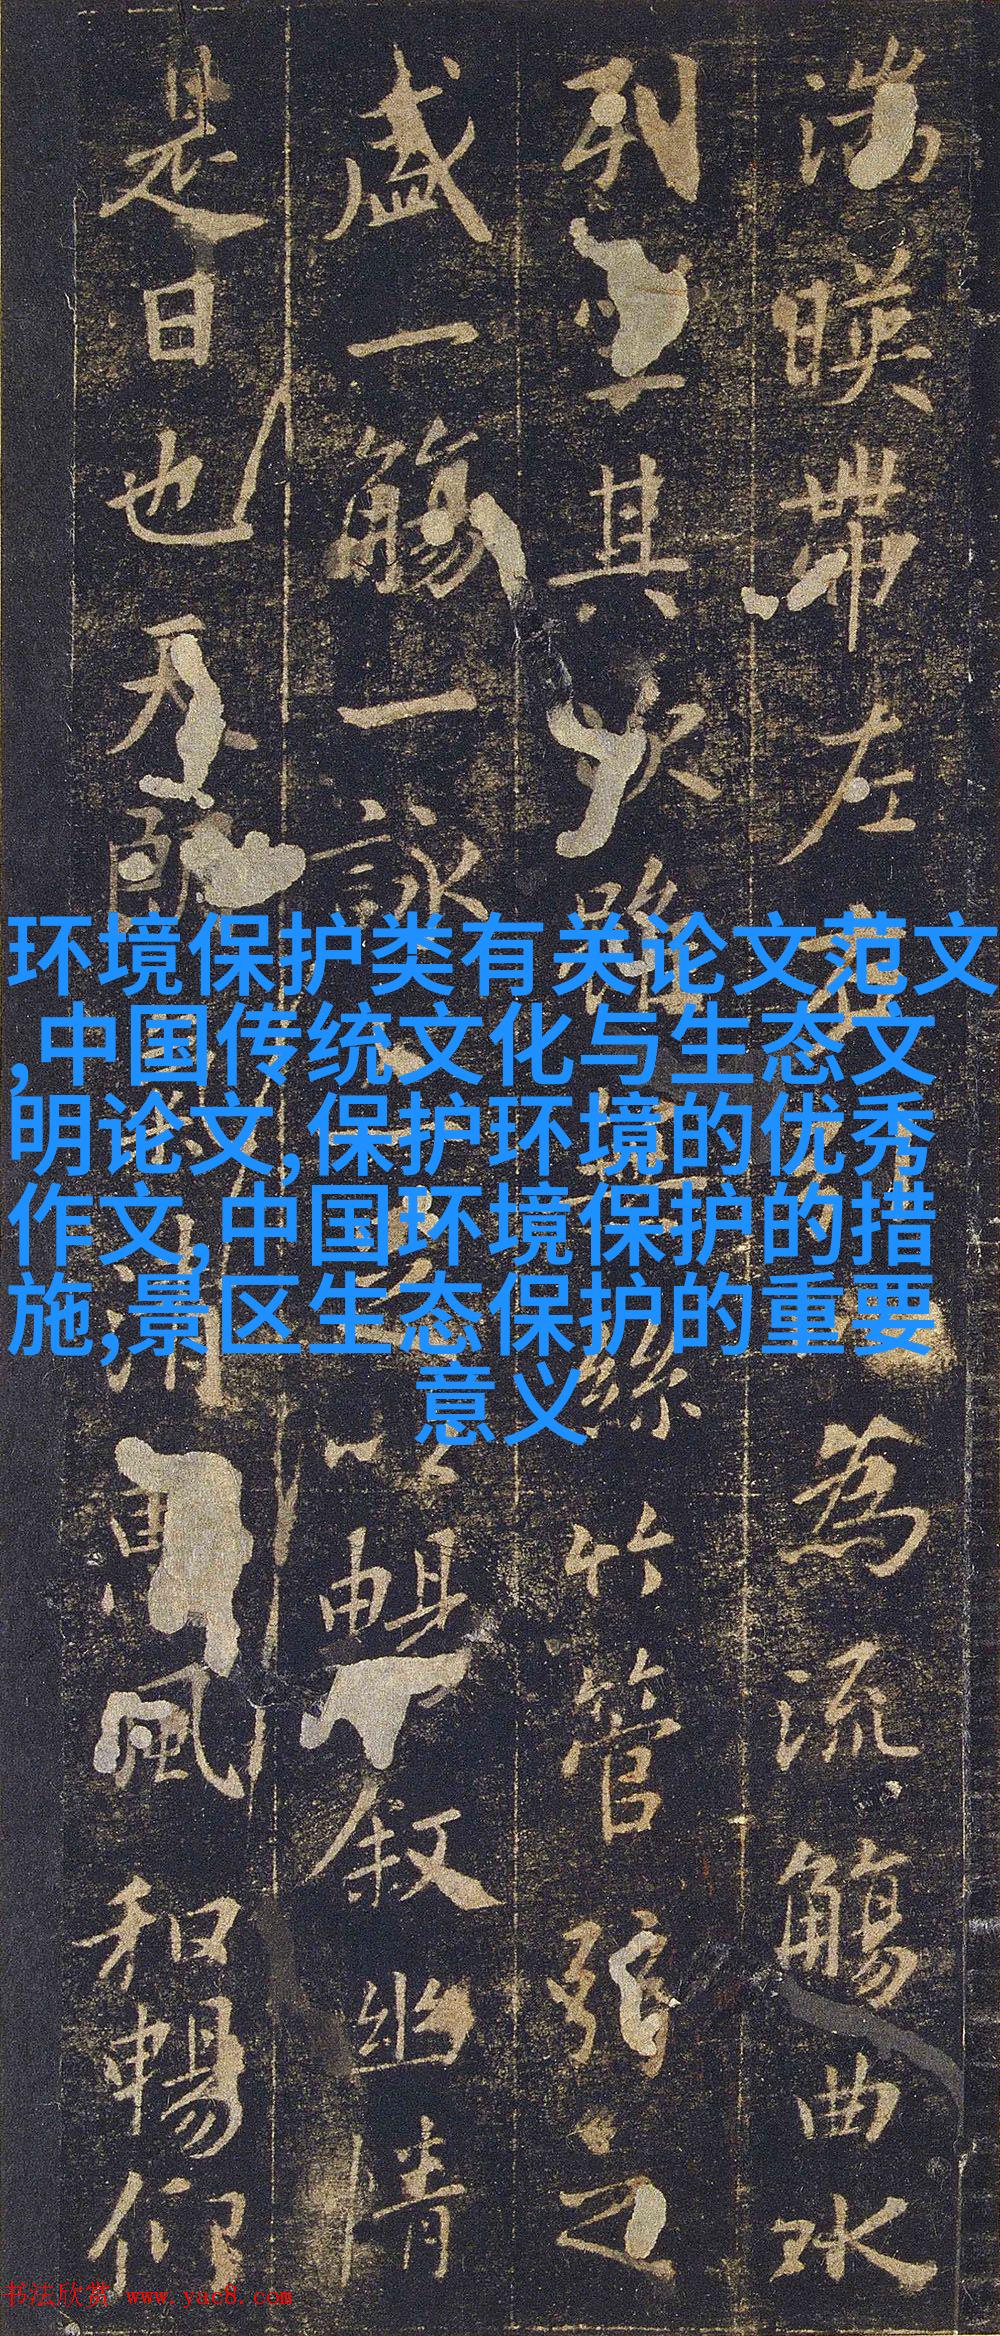 湍暎帶左右為流觴曲水
列坐其次雖絲竹管弦之
盛一觴一詠以暢叙幽情
是日也天朗清惠風和暢仰
环境保护类有关论文范文
,中国传统文化与生态文
明论文,保护环境的优秀
作文,中国环境保护的措
施,景区生态保护的重要
意义
书法欣赏 www.yac8.com